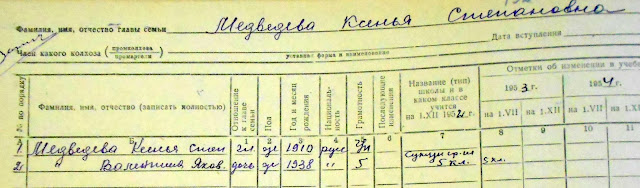 Фамилия, имя, отчество главы семьи Медведева Ксенья Степановна
Член какого колхоза (промколхоза / промартели)
уставная форма и наименование
Дата вступления
№ по порядку
Фамилия, имя, отчество (записать полностью)
Отношение к главе семьи
Пол
Год и месяц рождения
Националь- ность
Грамотность
Последующие изменения
Название (тип) школы и в каком классе учится на 1.XII 195 г.
Отметки об изменении в учебе
195 3 г. 195 4
на 1.VII на 1.XII на 1.VII на 1.XII
1 2 3 7 8 9 10 11
1. Медведева Ксенья Степ гл. ж 1910 рус
2. " Валентина Яков. дочь ж 1938 " 5 5 кл. 5 кл.